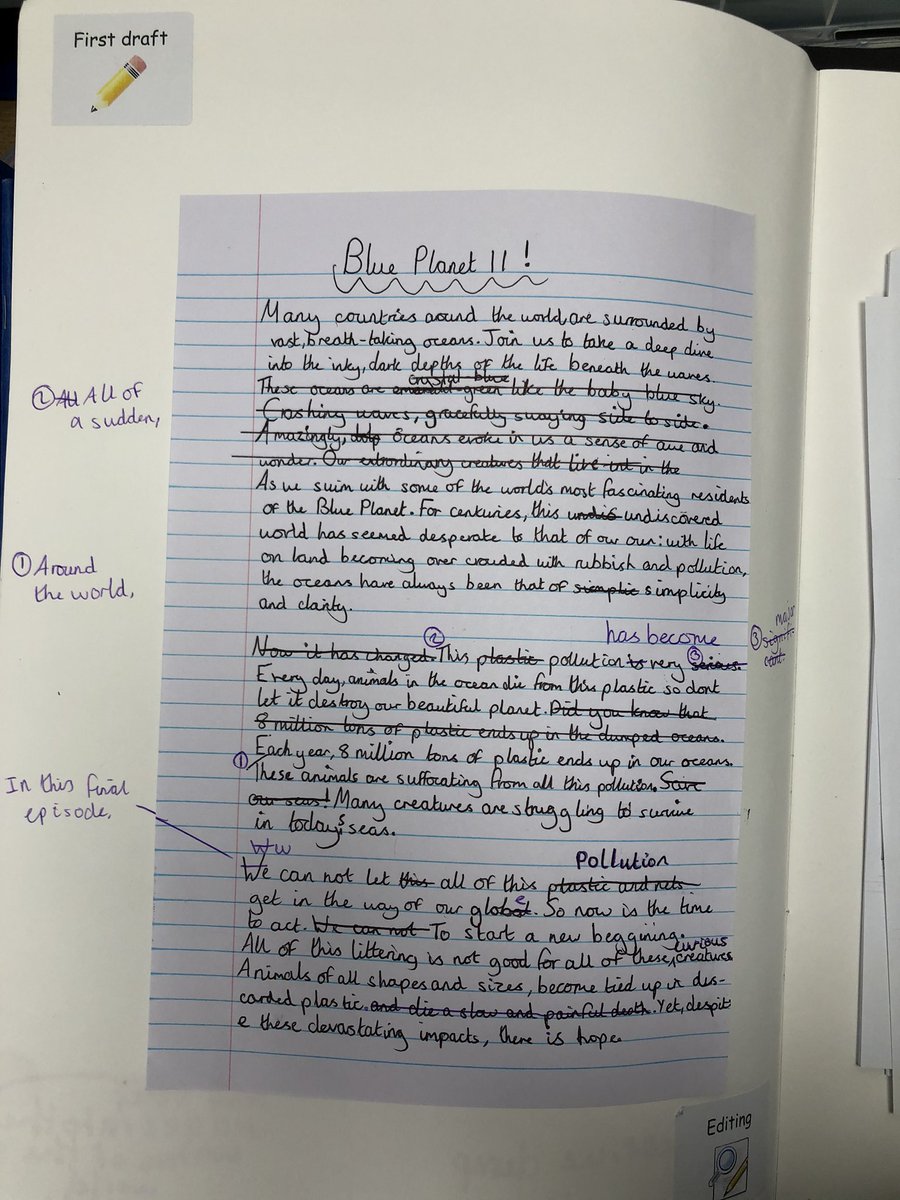 First draft
Blue Planet II !
Many countries around the world, are surrounded by
vast, breath-taking oceans. Join us to take a deep dive
into the inky, dark depths of the life beneath the waves.
crystal blue
These oceans are emerald-green like the baby blue sky.
Crashing waves, gracefully swaying side to side.
Amazingly, oceans evoke in us a sense of awe and
wonder. Our extordinary creatures that live in the
② All All of
a sudden,
As we swim with some of the world's most fascinating residents
of the Blue Planet. For centuries, this undis undiscovered
world has seemed desperate to that of our own: with life
on land becoming over crowded with rubbish and pollution,
the oceans have always been that of simplic simplicity
and clarity.
① Around
the world,
② has become ③ major
signifi-
cant.
Now it has changed. This plastic pollution is very ③ serious.
Every day, animals in the ocean die from this plastic so dont
let it destroy our beautiful planet. Did you know that
8 million tons of plastic ends up in the dumped oceans.
Each year, 8 million tons of plastic ends up in our oceans.
① These animals are suffocating from all this pollution. Save
our seas! Many creatures are struggling to survive
in today's seas.
In this final
episode,
W w Pollution
We can not let this all of this plastic and nets
get in the way of our globe. So now is the time
to act. We can not To start a new beggining.
All of this littering is not good for all of these, curious creatures
Animals of all shapes and sizes, become tied up in dis-
carded plastic and die a slow and painful death. Yet, despit
e these devastating impacts, there is hope.
Editing